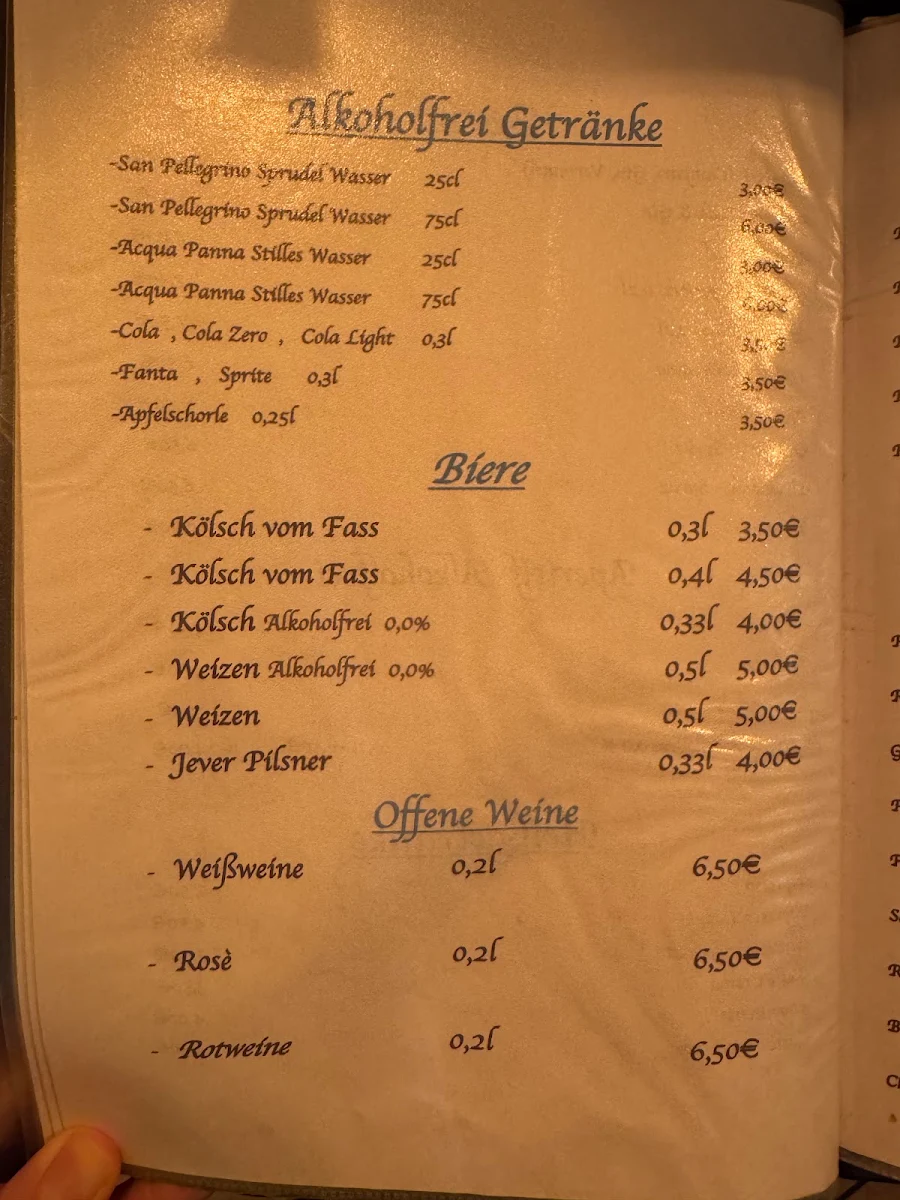 Alkoholfrei Getränke
-San Pellegrino Sprudel Wasser 25cl 3,00€
-San Pellegrino Sprudel Wasser 75cl 6,00€
-Acqua Panna Stilles Wasser 25cl 3,00€
-Acqua Panna Stilles Wasser 75cl 6,00€
-Cola , Cola Zero , Cola Light 0,3l 3,50€
-Fanta , Sprite 0,3l 3,50€
-Apfelschorle 0,25l 3,50€
Biere
- Kölsch vom Fass 0,3l 3,50€
- Kölsch vom Fass 0,4l 4,50€
- Kölsch Alkoholfrei 0,0% 0,33l 4,00€
- Weizen Alkoholfrei 0,0% 0,5l 5,00€
- Weizen 0,5l 5,00€
- Jever Pilsner 0,33l 4,00€
Offene Weine
- Weißweine 0,2l 6,50€
- Rosè 0,2l 6,50€
- Rotweine 0,2l 6,50€